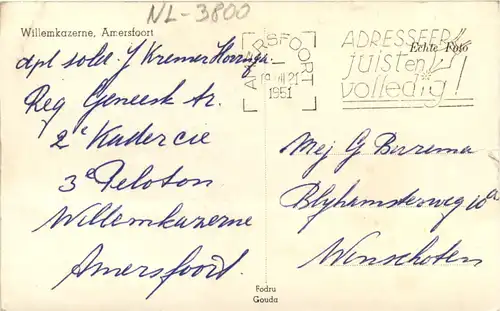 NL-3800
Willemkazerne, Amersfoort
dpl sold. J Kremer
Reg Geneesk Tr.
2e Kadercie
3e Peloton
Willemkazerne
Amersfoort.
AMERSFOORT
1951
ADRESSEER
juist en
volledig!
Echte Foto
Mej G Buzema
Blyhamsterweg 10a
Winschoten
Fodru
Gouda